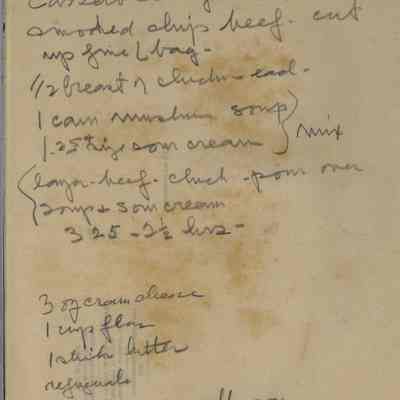 smoked chip beef. cut
up fine 1 bag -
1/2 breast chicken each -
1 can mushrm soup } mix
1 . 25¢ size sour cream
layer - beef - chick - pour over
soup & sour cream
325 - 2½ hrs -
3 oz cream cheese
1 cup flour
1 stick butter
refrigerate